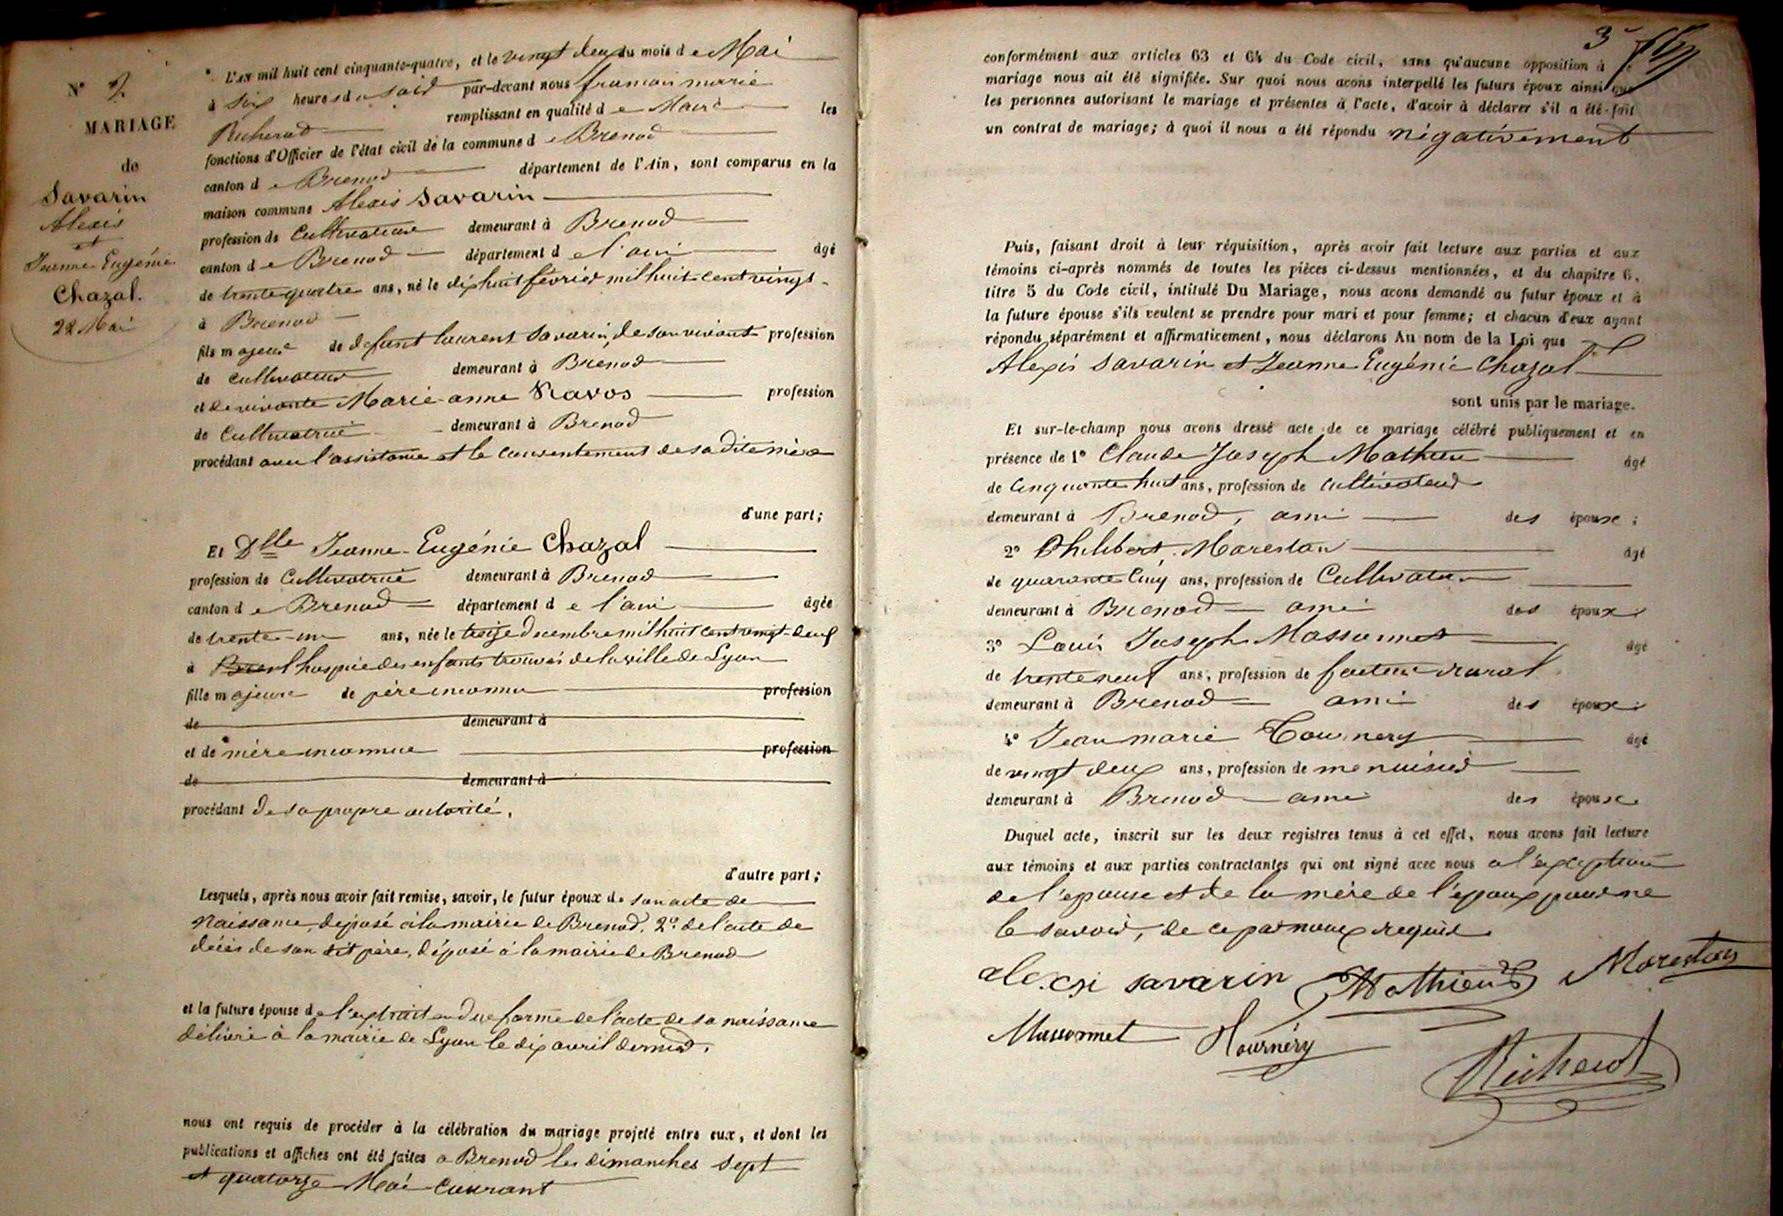 N° 2
MARIAGE
de
Savarin
Alexis
et
Jeanne Eugénie
Chazal.
22 Mai
L'an mil huit cent cinquante-quatre, et le vingt deux du mois de Mai
à six heures du soir par-devant nous francois marie
Richerot remplissant en qualité de Maire les
fonctions d'Officier de l'état civil de la commune de Brenod
canton de Brenod département de l'Ain, sont comparus en la
maison commune Alexis Savarin
profession de Cultivateur demeurant à Brenod
canton de Brenod département de l'ain âgé
de trente quatre ans, né le dix huit février mil huit cent vingt
à Brenod
fils majeur de defunt laurent Savarin, de son vivant profession
de cultivateur demeurant à Brénod
et de vivante Marie anne Ravos profession
de Cultivatrice demeurant à Brenod
procédant avec l'assistance et le consentement de sa dite mère
d'une part;
Et Dlle Jeanne Eugénie Chazal
profession de Cultivatrice demeurant à Brenod
canton de Brenod département de l'ain âgée
de trente-un ans, née le treize decembre mil huit cent vingt-deux
à l'hospice des enfants trouvés de la ville de Lyon
fille majeure de père inconnu profession
de demeurant à
et de mère inconnue profession
de demeurant à
procédant de sa propre autorité.
d'autre part;
Lesquels, après nous avoir fait remise, savoir, le futur époux de son acte de
naissance, déposé à la mairie de Brenod, 2° de l'acte de
décès de son dit père, déposé à la mairie de Brenod
et la future épouse de l'extrait en due forme de l'acte de sa naissance
délivré à la mairie de Lyon le dix avril dernier.
nous ont requis de procéder à la célébration du mariage projeté entre eux, et dont les
publications et affiches ont été faites à Brenod les dimanches sept
et quatorze Mai courant
3
conformément aux articles 63 et 64 du Code civil, sans qu'aucune opposition à ce
mariage nous ait été signifiée. Sur quoi nous avons interpellé les futurs époux ainsi que
les personnes autorisant le mariage et présentes à l'acte, d'avoir à déclarer s'il a été fait
un contrat de mariage; à quoi il nous a été répondu négativement
Puis, faisant droit à leur réquisition, après avoir fait lecture aux parties et aux
témoins ci-après nommés de toutes les pièces ci-dessus mentionnées, et du chapitre 6,
titre 5 du Code civil, intitulé Du Mariage, nous avons demandé au futur époux et à
la future épouse s'ils veulent se prendre pour mari et pour femme; et chacun d'eux ayant
répondu séparément et affirmativement, nous déclarons Au nom de la Loi que
Alexis Savarin et Jeanne Eugénie Chazal
sont unis par le mariage.
Et sur-le-champ nous avons dressé acte de ce mariage célébré publiquement et en
présence de 1° Claude Joseph Mathieu âgé
de cinquante huit ans, profession de cultivateur
demeurant à Brenod, ami des époux;
2° Philibert Marestan âgé
de quarante cinq ans, profession de Cultivateur
demeurant à Brenod ami des époux
3° Louis Joseph Massonnet âgé
de trente neuf ans, profession de facteur rural
demeurant à Brenod ami des époux
4° Jean marie Tournery âgé
de vingt deux ans, profession de menuisier
demeurant à Brenod ami des époux
Duquel acte, inscrit sur les deux registres tenus à cet effet, nous avons fait lecture
aux témoins et aux parties contractantes qui ont signé avec nous a l'exception
de l'epouse et de la mère de l'epoux pour ne
le savoir, de ce par nous requis
alexsi savarin Mathieu Marestan
Massonnet Tournéry
Richerot